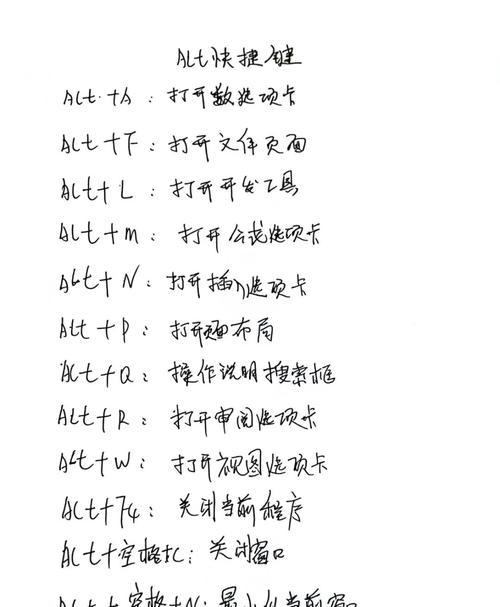 Alt快捷键
Alt+A：打开数选项卡
Alt+F：打开文件页面
Alt+L：打开开发工具
Alt+m：打开公式选项卡
Alt+N：打开插入选项卡
Alt+P：打开页面布局
Alt+Q：操作说明搜索框
Alt+R：打开审阅选项卡
Alt+W：打开视图选项卡
Alt+74：关闭当前程序
Alt+空格+C：关闭窗口
Alt+空格+N：最小化当前窗